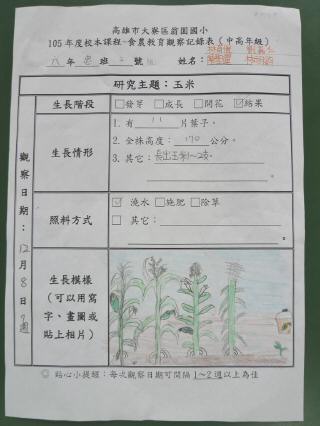 高雄市大寮區翁園國小
105年度校本課程-食農教育觀察記錄表(中高年級)
六年 忠 班 號 姓名:
研究主題:玉米
生長階段 □發芽 □成長 □開花 ☑結果
生長情形
1. 有 11 片葉子。
2. 全株高度: 170 公分。
3. 其它: 長出玉米1~2支。
照料方式
☑ 澆水 □施肥 □除草
□ 其它:
。
生長模樣
(可以用寫
字、畫圖或
貼上相片)
觀察日期:12月8日 週
◎ 貼心小提醒:每次觀察日期可間隔1~2週以上為佳